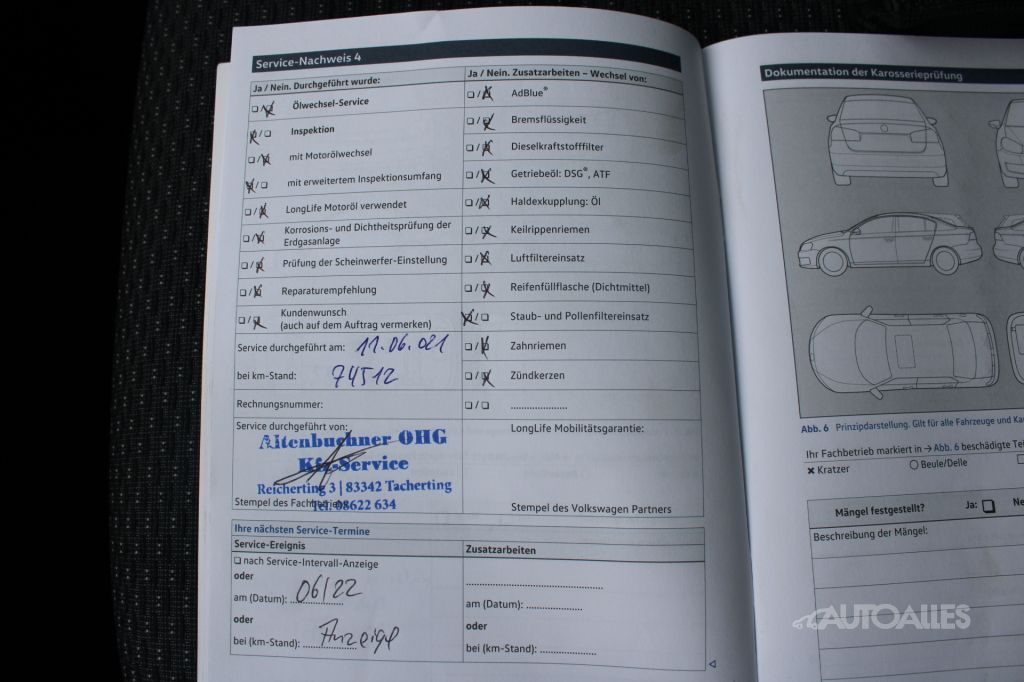 Service-Nachweis 4
Ja / Nein. Durchgeführt wurde:
Ölwechsel-Service
Inspektion
mit Motorölwechsel
mit erweitertem Inspektionsumfang
LongLife Motoröl verwendet
Korrosions- und Dichtheitsprüfung der
Erdgasanlage
Prüfung der Scheinwerfer-Einstellung
Reparaturempfehlung
Kundenwunsch
(auch auf dem Auftrag vermerken)
Service durchgeführt am: 11.06.021
bei km-Stand: 74512
Rechnungsnummer:
Service durchgeführt von:
Altenbuchner OHG
Kfz-Service
Reicherting 3 | 83342 Tacherting
Stempel des Fachbetriebs
Tel. 08622 634
Ja / Nein. Zusatzarbeiten – Wechsel von:
AdBlue®
Bremsflüssigkeit
Dieselkraftstofffilter
Getriebeöl: DSG®, ATF
Haldexkupplung: Öl
Keilrippenriemen
Luftfiltereinsatz
Reifenfüllflasche (Dichtmittel)
Staub- und Pollenfiltereinsatz
Zahnriemen
Zündkerzen
LongLife Mobilitätsgarantie:
Stempel des Volkswagen Partners
Ihre nächsten Service-Termine
Service-Ereignis
nach Service-Intervall-Anzeige
oder
am (Datum): 06/22
oder
bei (km-Stand): Anzeige
Zusatzarbeiten
am (Datum):
oder
bei (km-Stand):
Dokumentation der Karosserieprüfung
Abb. 6 Prinzipdarstellung. Gilt für alle Fahrzeuge und
Ihr Fachbetrieb markiert in → Abb. 6 beschädigte
Kratzer
Beule/Delle
Mängel festgestellt? Ja:
Beschreibung der Mängel:
AUTOALLES